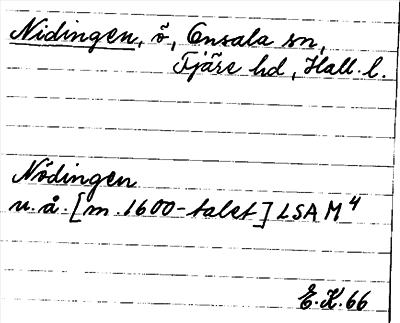 Nidingen, ö, Onsala sn,
Fjäre hd, Hall. l.
Nödingen
u. å. [m. 1600-talet] LSA M⁴
E.K. 66